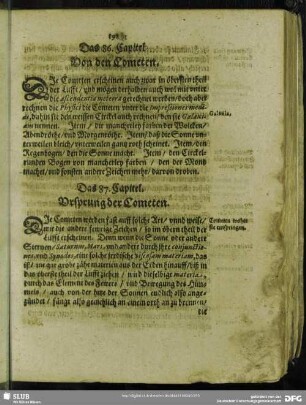 Das 86. Capitel.
Von den Cometen.
Die Cometen erscheinen auch zwar in öbersten theil
der Lufft / und mögen derhalben auch wol mit unter
die ascendentia meteora gerechnet werden / doch aber
rechnen die Physici die Cometen unter die Impressiones
da hin sie den weissen Cirkel auch rechnen / den sie Galaxiam
nennen. Item / die mancherley farben der Wolcken /
Abendröte / und Morgenröthe. Item / daß die Sonne un-
terweilen bleich / unterweilen gang roth scheinet. Item / den
Regenbogen / den die Sonne macht. Item / den Cirkel-
runden Bogen von mancherley farben / den der Mond
machet / und sonsten andere Zeichen mehr / darvon droben.
Galaxia.
Das 87. Capitel.
Ursprung der Cometen.
Die Cometen werden fast auff solche Art / unnd weise /
wie die andere fewrige Zeichen / so im öbern theil der
Lufft erscheinen. Denn wenn die Sonne oder andere
Sternen, Saturnus, Mars, und andere durch ihre
eine solche irrdische materiam, das
ist / ein gar grobe zähe materien aus der Erden hinauff / biß in
das oberste theil der Lufft ziehen / und dieselbige materia,
durch das Element des Fewers / und Bewegung des Him-
mels / auch von der hitze der Sonnen endlich also ange-
zündet / fängt also gemehlich an einem orth an zu brennen /
die
Cometen woher
sie entspringen.
SLUB
DFG